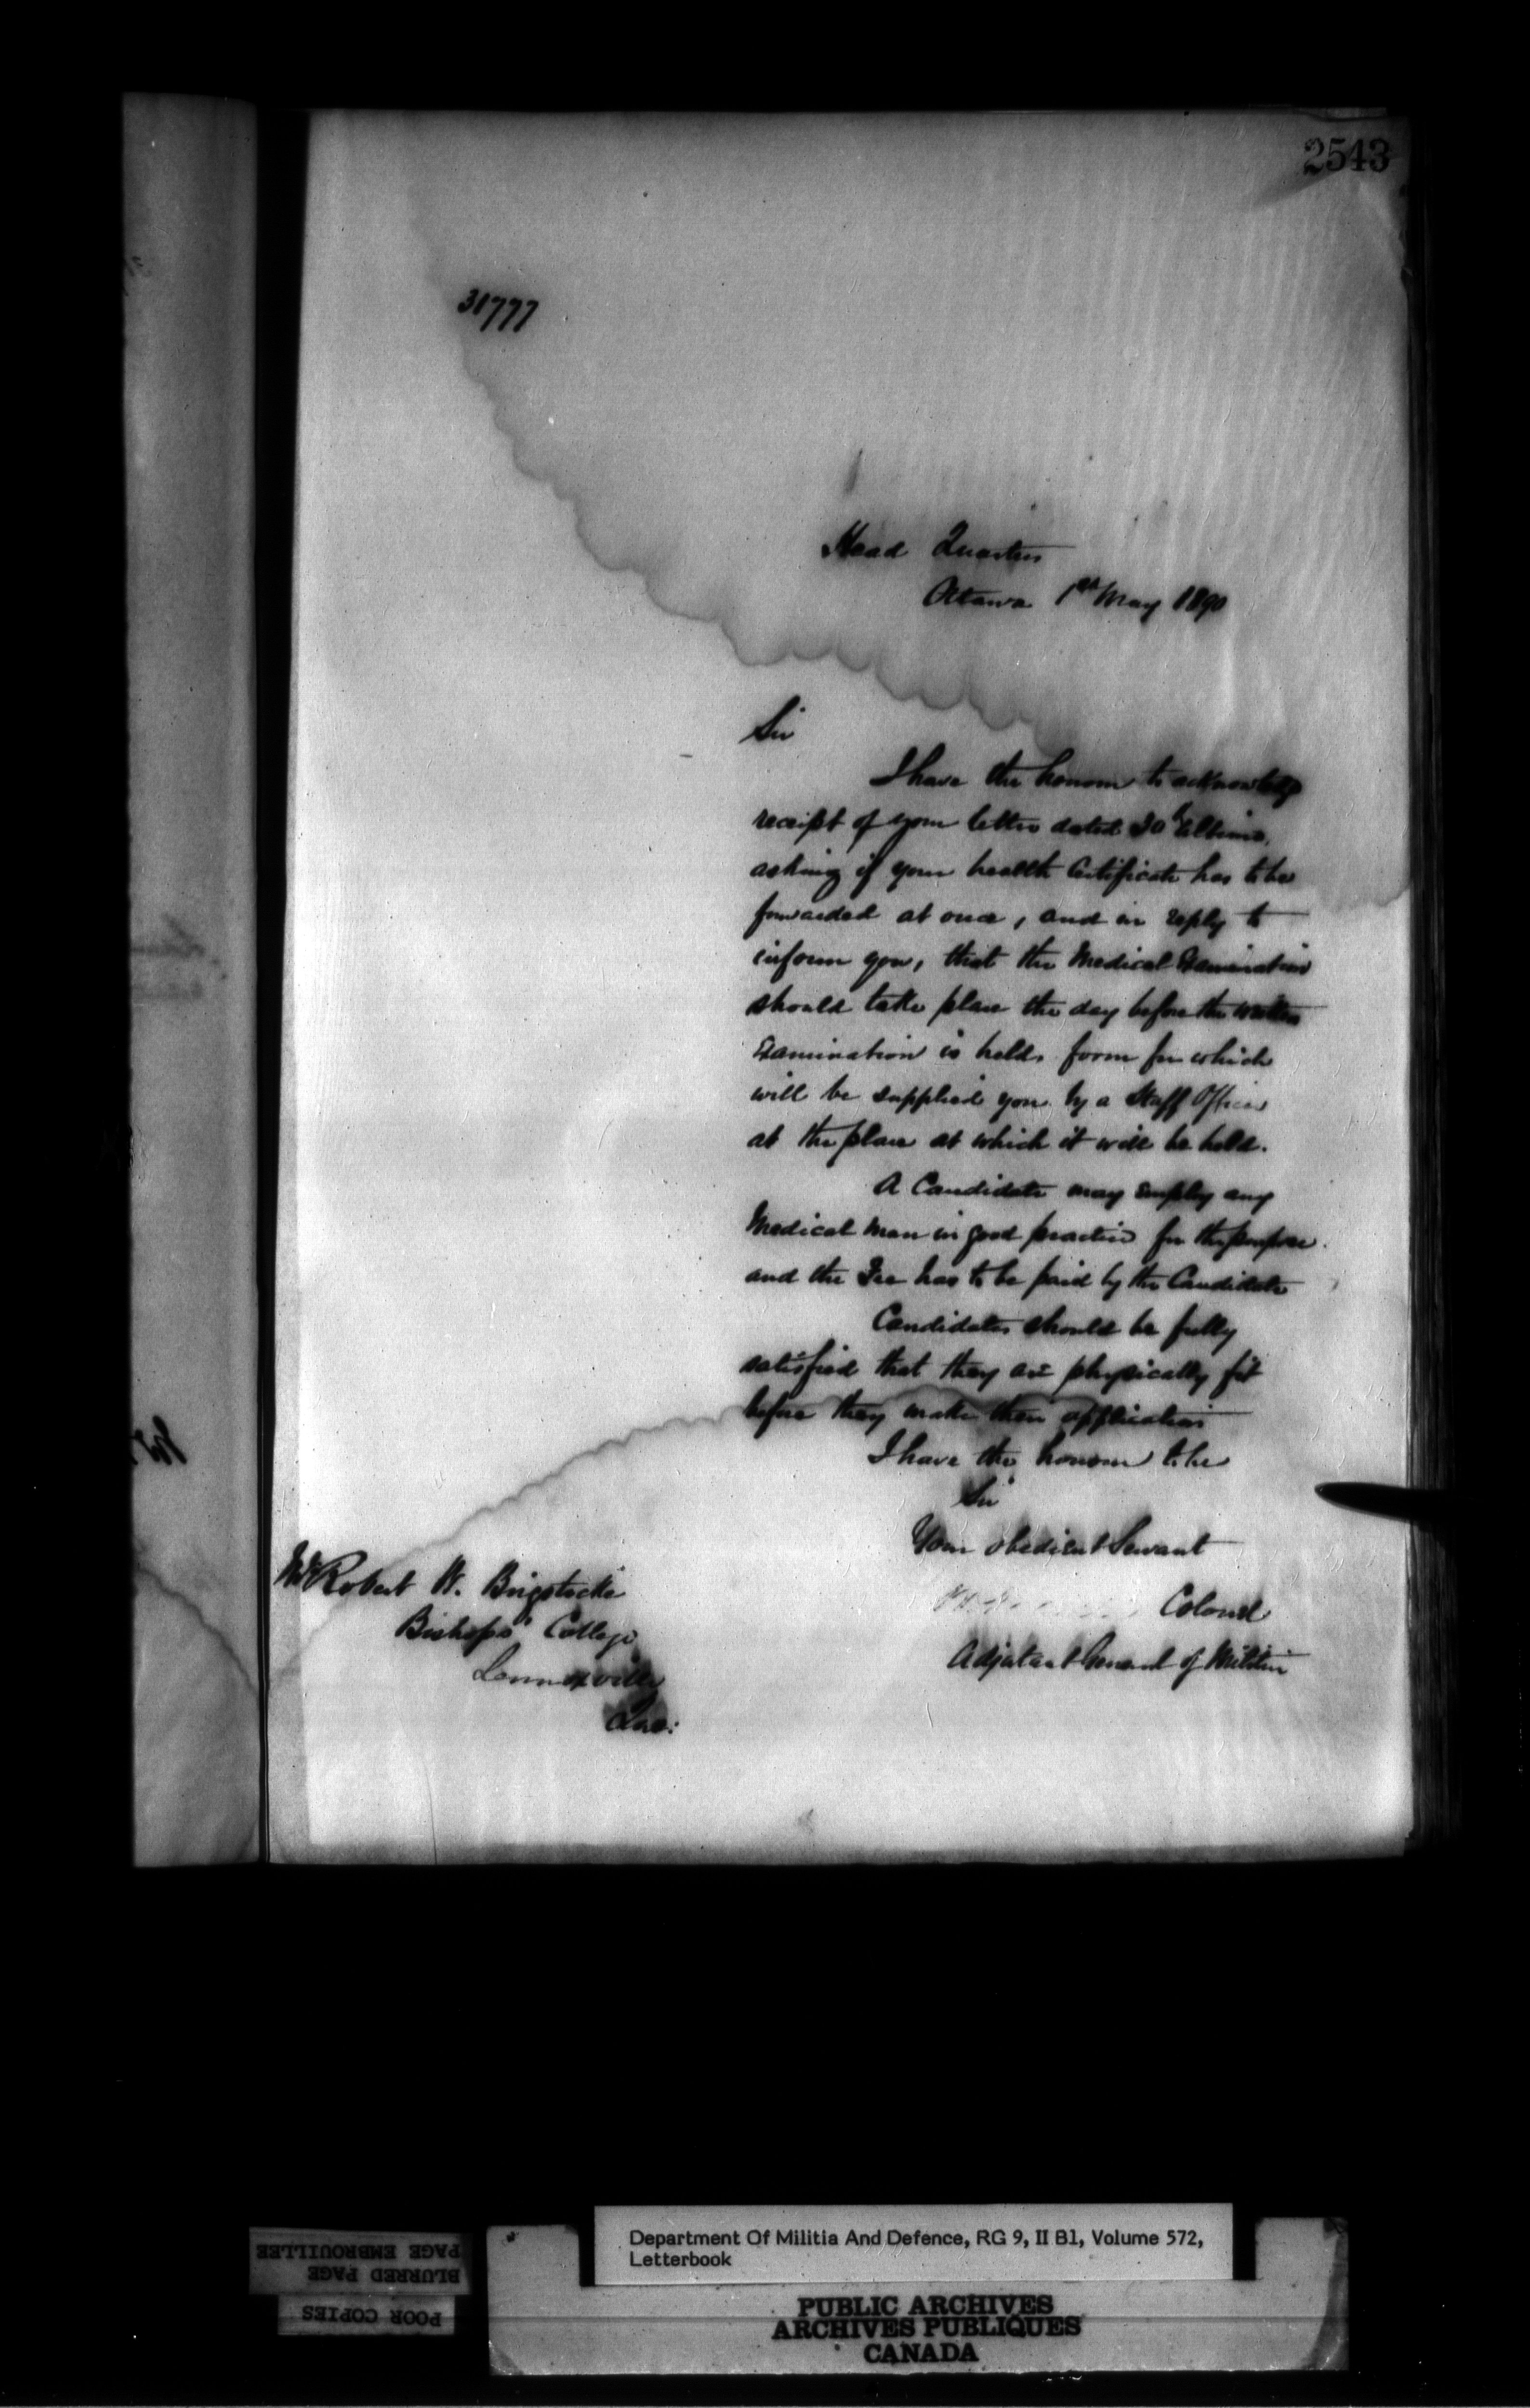 2543
31777
Head Quarters
Ottawa 1st May 1890
Sir
I have the honour to acknowledge
receipt of your letter dated 30th Ultimo,
asking if your health Certificate has to be
forwarded at once, and in reply to
inform you, that the Medical Examination
should take place the day before the written
Examination is held, form for which
will be supplied you by a Staff Officer
at the place at which it will be held.
A Candidate may employ any
Medical Man in good practice for the purpose
and the Fee has to be paid by the Candidate
Candidates should be fully
satisfied that they are physically fit
before they make their application
I have the honour to be
Sir
Your obedient Servant
Colonel
Adjutant General of Militia
Mr Robert W. Brigstocke
Bishops' College
Lennoxville
Que:
Department Of Militia And Defence, RG 9, II B1, Volume 572,
Letterbook
PUBLIC ARCHIVES
ARCHIVES PUBLIQUES
CANADA
POOR COPIES
BLURRED PAGE
PAGE EMBROUILLEE